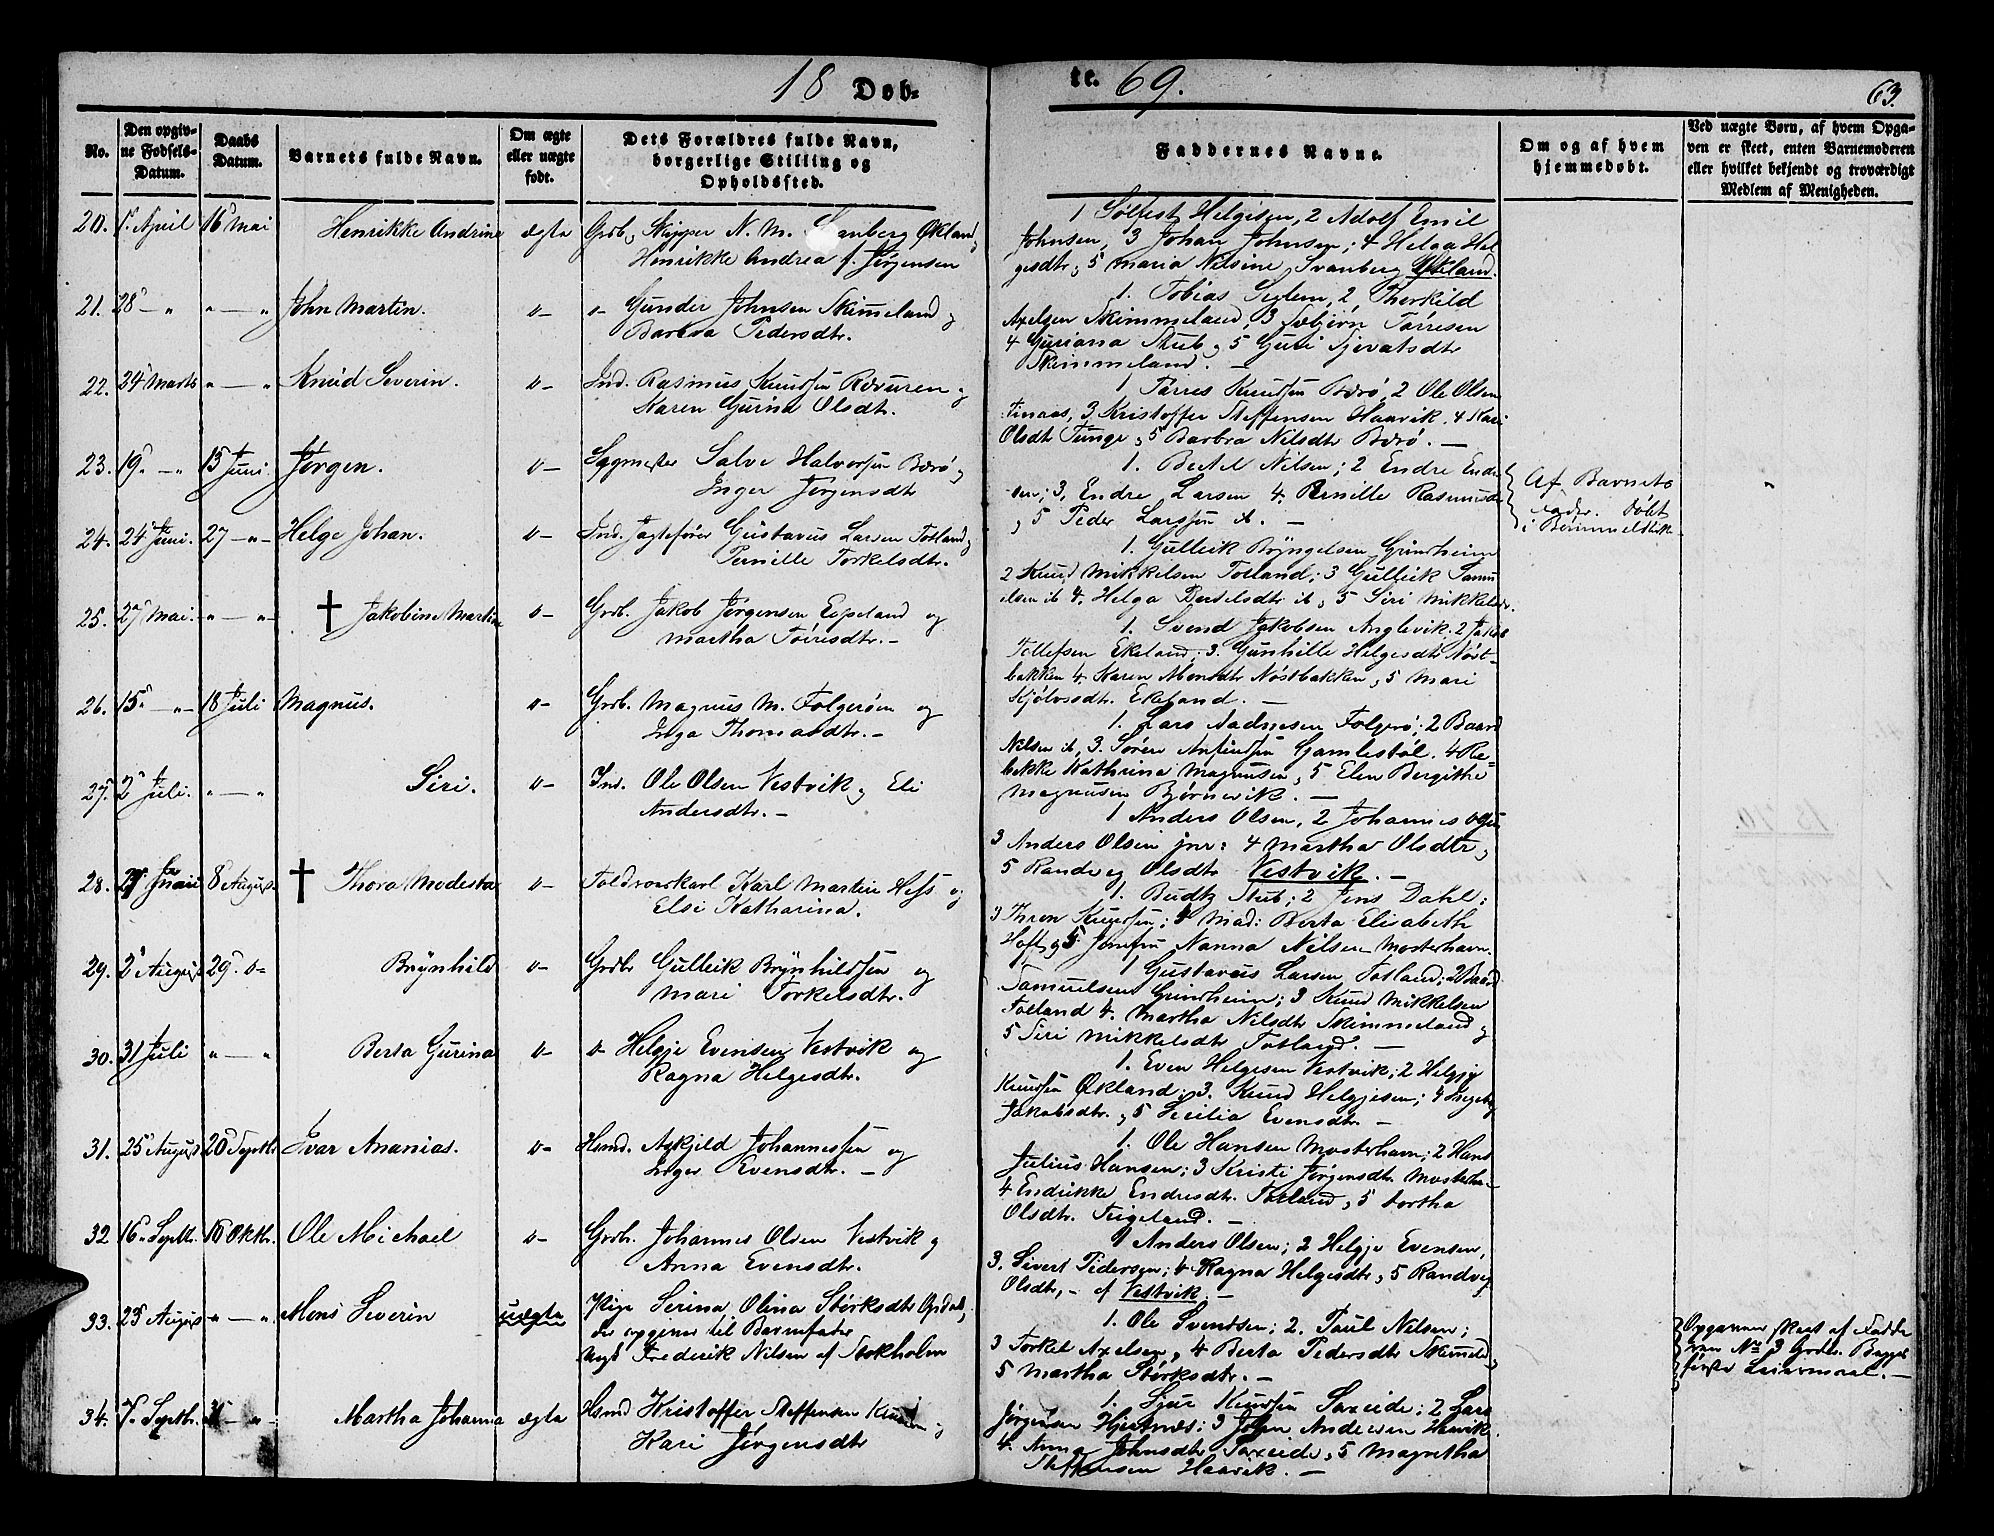 18 Dob-
te. 69.
63.
No.
Den opgiv-
ne Fødsels-
Datum.
Daabs
Datum.
Barnets fulde Navn.
Om ægte
eller uægte
født.
Dets Forældres fulde Navn,
borgerlige Stilling og
Opholdssted.
Faddernes Navne.
Om og af hvem
hjemmedøbt.
Ved uægte Børn, af hvem Opga-
ven er skeet, enten Barnemoderen
eller hvilket bekjendt og troværdigt
Medlem af Menigheden.
20. 1. April 16 Mai Henrikke Andrine ægte Grdb. Skipper N. M. Svanberg Økland
Henrikke Andrea f. Jørgensen
1 Sølfest Helgesen, 2 Adolf Emil
Johnsen, 3 Johan Johnsen; 4 Helga Hel
gesdtr, 5 Maria Nilsine Svanberg Økland.
21. 28 - " " - " John Martin. o- o- Gunder Johnsen Skimeland og
Barbra Pedersdtr.
1. Tobias Seglem, 2 Therkild
Axelsen Skimmeland, 3 Torres
4 Guriana Stub, 5 Guri
Skimmeland. -
22. 24 Marts " - " Knud Severin. o- Ind. Rasmus Knudsen Rævuren og
Karen Gurina Olsdtr.
1 Tørres Knudsen Børø, 2 Ole Olsen
Finaas, 3 Kristoffer Steffensen Haavik. 4 Kari
Olsdtr Tunge, 5 Barbra Nilsdtr Børø. -
23. 19 - " 13 Juni Jørgen. o- Sagmester Salve Halvorsen Børø og
Inger Jørgensdtr
1. Bertel Nilsen; 2 Endre Endre
sen; 3, Endre Larsen 4. Pernille Rasmusdtr
og 5 Peder Larsen ib. -
Af Barnets
Fader. Døbt
i Bømmeldkirk
"
24. 24 Juni. 27 - " - Helge Johan. o- Ind. Jagtefører Gustavus Larsen Totland og
Pernille Torkelsdtr.
1. Gulleik Bryngelsen Grindheim
2 Knud Mikkelsen Totland; 3 Gulleik Samu
elsen ib 4. Helga Bertelsdtr ib, 5 Siri Mikkelsdtr.
25. 27 Mai. " - " - † Jakobine Martine o- Grdb. Jakob Jørgensen Espeland og
Martha Torisdtr. -
1. Svend Jakobsen Anglevik. 2 Jakob
Tollefsen Ekeland; 3. Gunhille Helgesdtr Nøst-
bakken 4. Karen Monsdtr Nøstbakken, 5 Mari
Kjølvsdtr. Ekeland. -
26. 15 - " - 18 Juli Magnus. o- Grdb. Magnus M. Folgerøen og
Inga Thomasdtr. -
1. Lars Aadnesen Folgerø; 2 Baard
Nilsen ib, 3. Søren Anfindsen Gamlestøl. 4 Re-
bekke Kathrina Magnusen, 5 Elen Bergithe
Magnusen Bjørnevik. -
27. 2 Juli. " - " Siri. o- Ind. Ole Olsen Vestvik og Eli
Andersdtr. -
1 Anders Olsen, 2 Johannes Olsen
3 Anders Olsen jnr: 4 Martha Olsdtr og
5 Randveg Olsdtr Vestvik. -
28. 8 August. † Thora Modesta o- Toldroerkarl Karl Martin Hess og
Elsi Katharina.
1. Budtz Stub; 2 Jens Dahl;
3 Thron Knudsen; 4 Mad: Berta Elisabeth
Hoft, 5. Jomfru Nanna Nilsen Mosterhavn.
29. 2 August 29 o- Brynhild o- Grdbr Gulleik Brynhildsen og
Mari Torkelsdtr.
1 Gustavus Larsen Totland; 2 Baard
Samuelsen Grindheim; 3 Knud Mikkelsen
Totland 4. Martha Nilsdtr Skimmeland og
5 Siri Mikkelsdtr Totland. -
30. 31 Juli " - " Berta Gurina o- o- Helgje Evensen Vestvik og
Ragna Helgesdtr.
1. Even Helgesen Vestvik; 2 Helgje
Knudsen Økland; 3. Knud Helgjesen; 4 Ingeborg
Jakobsdtr., 5 Sicilia Evensdtr. -
31. 25 August 26 Septbr Ivar Ananias. o- Hsmd. Askjeld Johannessen og
Inger Evensdtr. -
1. Ole Hansen Mosterhavn; 2 Hans
Julius Hansen; 3 Kristi Jørgensdtr Mosterhn-
4 Endrikke Endresdtr. Totland, 5 Dortha
Olsdtr. Teigeland. -
32 16 Septbr. 16 Oktbr. Ole Michael o- Grdb. Johannes Olsen Vestvik og
Anna Evensdtr.
1 Anders Olsen; 2 Helgje Evensen,
3. Sivert Pedersen; 4 Ragna Helgesdtr, 5 Randveg
Olsdtr, - af Vestvik. -
33. 23 August " - " Mons Severin uægte Pige Serina Olina Størksdtr Opdal,
der opgiver til Barnefader
Ungk Frederik Nilsen af Stokholm
1. Ole Svendsen; 2. Paul Nilsen;
3 Torkel Axelsen, 4 Berta Pedersdtr Skimeld,
5 Martha Størksdtr. -
Opgaven skeet af Fadde
ren No 3 Grdbr. Begges
første Leiermaal. -
34. 7 Septbr. - " - Martha Johanna ægte Hsmd Kristoffer Steffensen og
Kari Jørgensdtr
1. Sjur Knudsen Saxeide; 2 Lars
Jørgensen Hjertnes; 3 John Andersen Haavik.
4. Anna Johnsdtr Saxeide, 5 Magretha
Steffensen Haavik. -